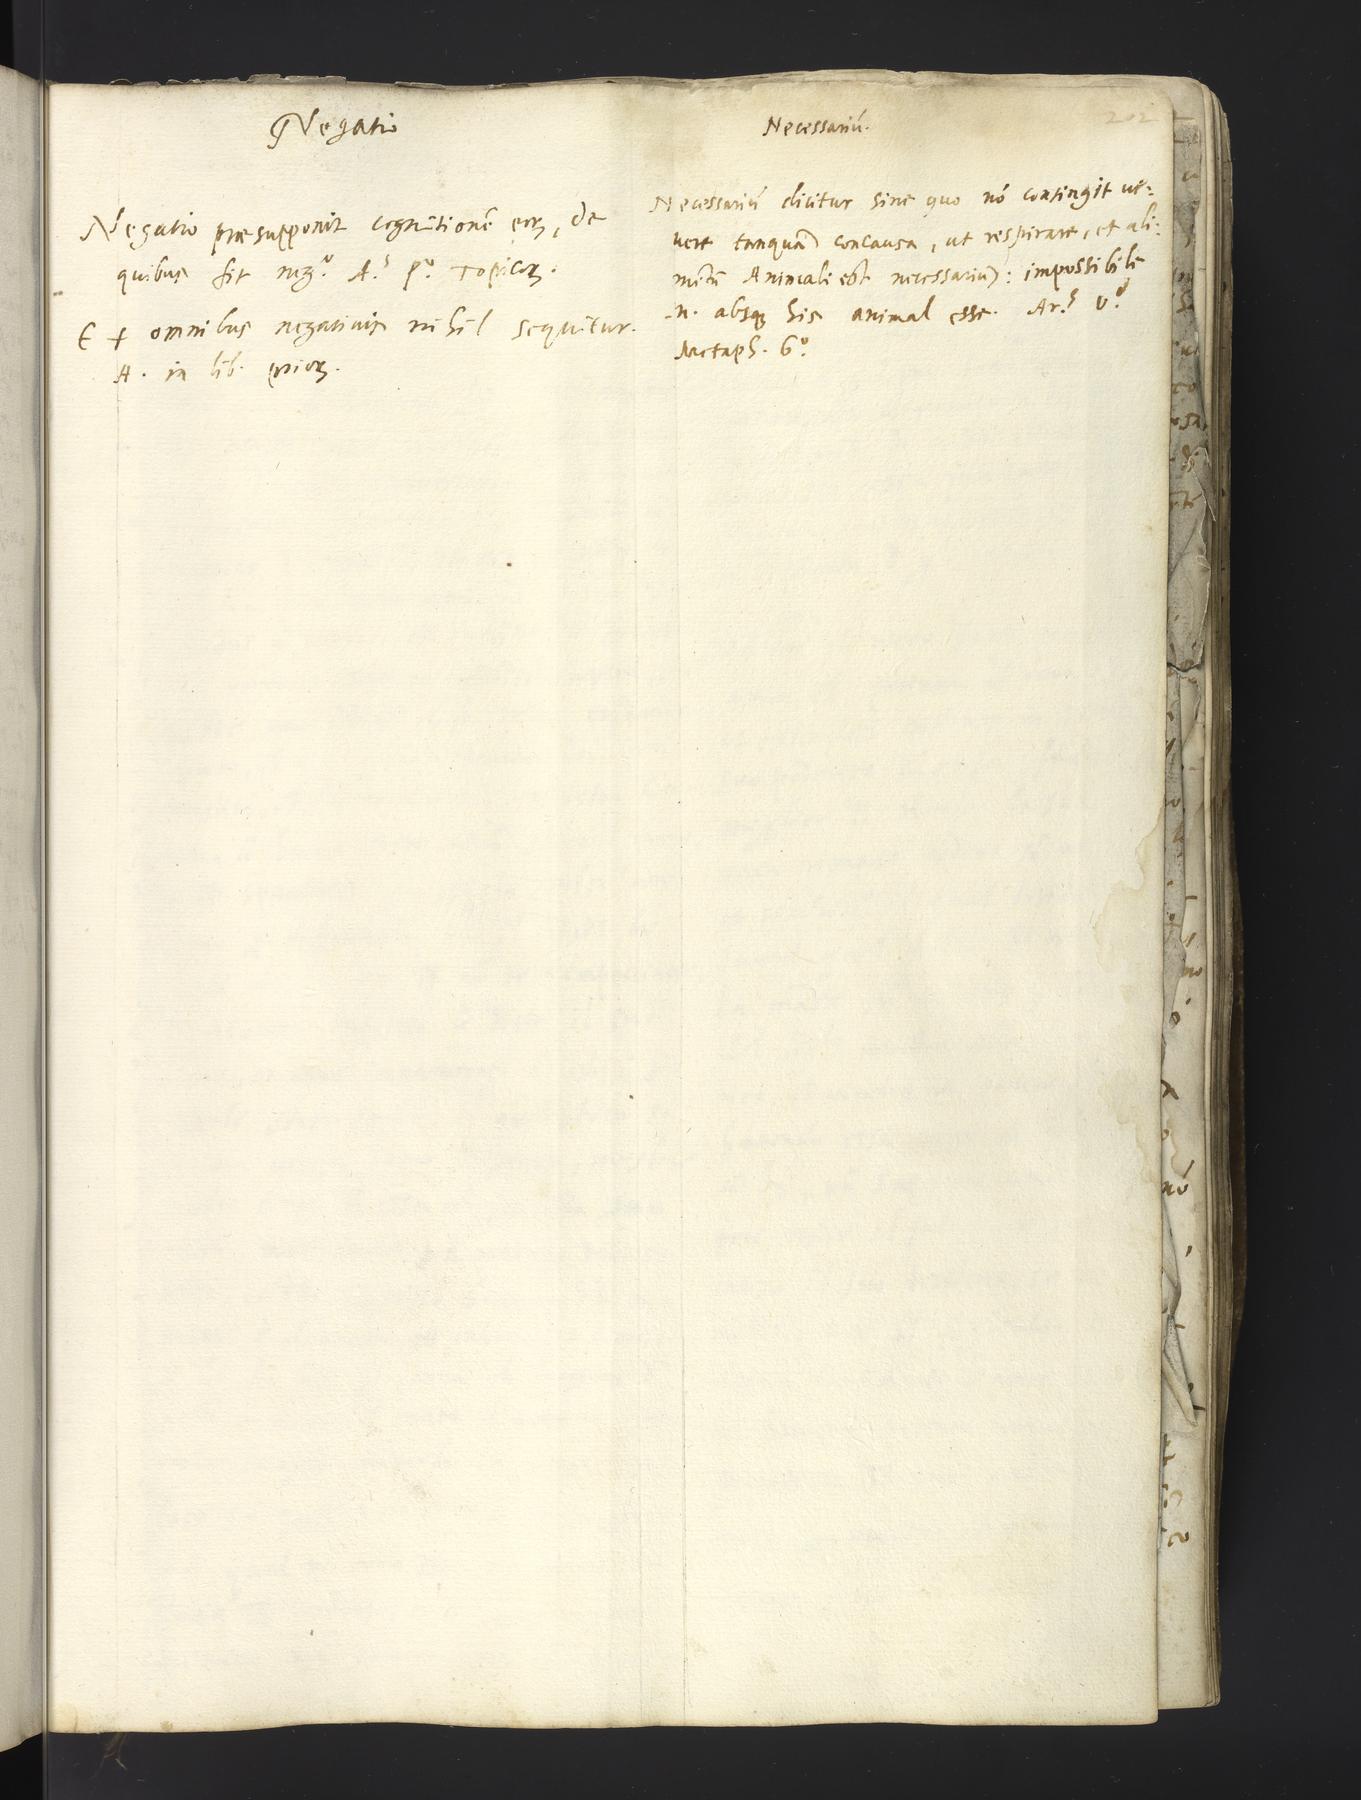 Negatio
Negatio præsupponit cognitionẽ eoꝝ, de
quibus fit neg.º A.ˢ p.º Topicoꝝ.
E x omnibus negativis nihil sequitur.
A. in lib. prioꝝ.
Necessariũ.
202
Necessariũ dicitur sine quo nõ contingit ui⸗
uere tanquã concausa, ut respirare, et ali⸗
mẽtũ Animali est necessariũ: impossibile
.n. absqꝫ his animal esse. Ar.ˢ V.º
Metaph. 6.º